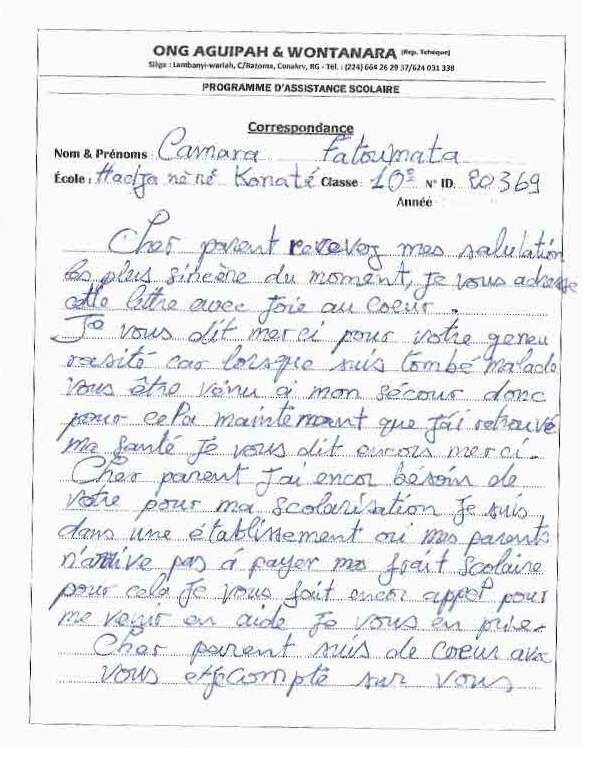 ONG AGUIPAH & WONTANARA (Rep. Tchèque)
Siège : Lambanyi-wariah, C/Ratoma, Conakry, RG - Tél. : (224) 664 26 29 37/624 031 338
PROGRAMME D'ASSISTANCE SCOLAIRE
Correspondance
Nom & Prénoms : Camara Fatoumata
École : Hadja nènè Konaté Classe : 10e N° ID. 20369
Année
Cher parent recevez mes salutation
les plus sincère du moment, je vous adresse
cette lettre avec joie au coeur.
Je vous dit merci pour votre geneu
rosité car lorsque suis tombé malade
vous être vénu à mon sécour donc
pour cela maintemant que j'ai retrouvé
ma santé je vous dit encors merci.
Cher parent j'ai encor bésoin de
votre pour ma scolarisation je suis
dans une établissement où mes parents
n'arrive pas à payer mes frait scolaire
pour cela je vous fait encor appel pour
me venir en aide je vous en prie.
Cher parent suis de coeur avec
vous et je compte sur vous